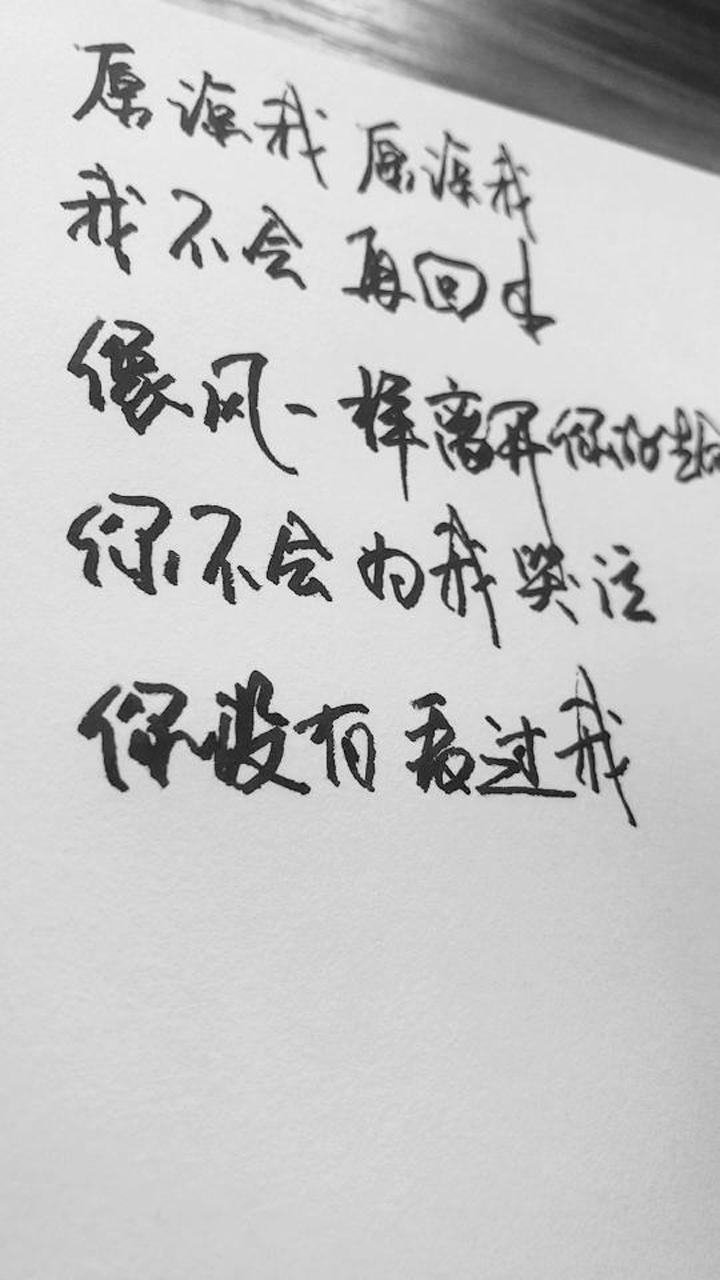 原谅我 原谅我
我不会再回来
像风一样离开你的
你不会为我哭泣
你没有看过我